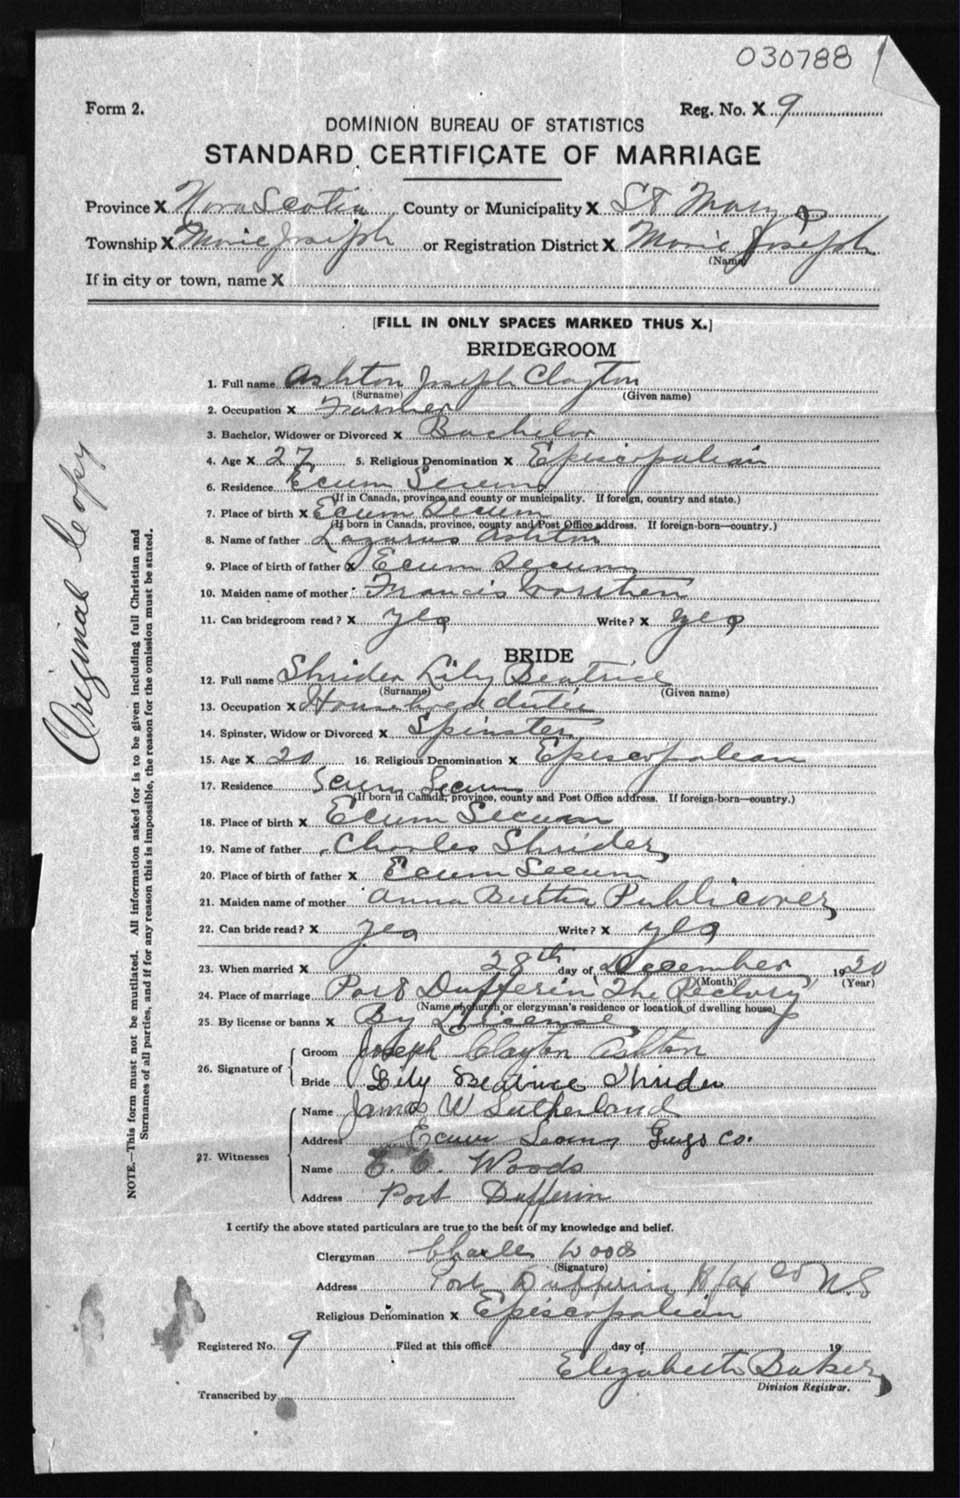 030788
Form 2.
Reg. No. X 9
DOMINION BUREAU OF STATISTICS
STANDARD CERTIFICATE OF MARRIAGE
Province X Nova Scotia County or Municipality X St Marys
Township X Marie Joseph or Registration District X Marie Joseph
(Name)
If in city or town, name X
[FILL IN ONLY SPACES MARKED THUS X.]
BRIDEGROOM
1. Full name Ashton Joseph Clayton
(Surname) (Given name)
2. Occupation X Farmer
3. Bachelor, Widower or Divorced X Bachelor
4. Age X 27 5. Religious Denomination X Episcopalian
6. Residence Ecum Secum
(If in Canada, province and county or municipality. If foreign, country and state.)
7. Place of birth X Ecum Secum
(If born in Canada, province, county and Post Office address. If foreign-born—country.)
8. Name of father Lazarus Ashton
9. Place of birth of father X Ecum Secum
10. Maiden name of mother Francis
11. Can bridegroom read? X yes Write? X yes
BRIDE
12. Full name Shrider Lily Beatrice
(Surname) (Given name)
13. Occupation X Household duties
14. Spinster, Widow or Divorced X Spinster
15. Age X 20 16. Religious Denomination X Episcopalean
17. Residence Secum
(If born in Canada, province, county and Post Office address. If foreign-born—country.)
18. Place of birth X Ecum Secum
19. Name of father Charles Shrider
20. Place of birth of father X Ecum Secum
21. Maiden name of mother Anna Burtha Publicover
22. Can bride read? X yes Write? X yes
23. When married X 28th day of December 1920
(Month) (Year)
24. Place of marriage Port Dufferin "The Rectory"
(Name of church or clergyman's residence or location of dwelling house)
25. By license or banns X By License
26. Signature of
Groom Joseph Clayton Ashton
Bride Lily Beatrice Shrider
27. Witnesses
Name James W Sutherland
Address Ecum Guys Co.
Name E. C. Woods
Address Port Dufferin
I certify the above stated particulars are true to the best of my knowledge and belief.
Clergyman Charles Woods
(Signature)
Address Port Dufferin Hfax Co N.S
Religious Denomination X Episcopalian
Registered No. 9 Filed at this office day of 19
Elizabeth Baker
Division Registrar.
Transcribed by
Original Copy
NOTE.—This form must not be mutilated. All information asked for is to be given including full Christian and
Surnames of all parties, and if for any reason this is impossible, the reason for the omission must be stated.